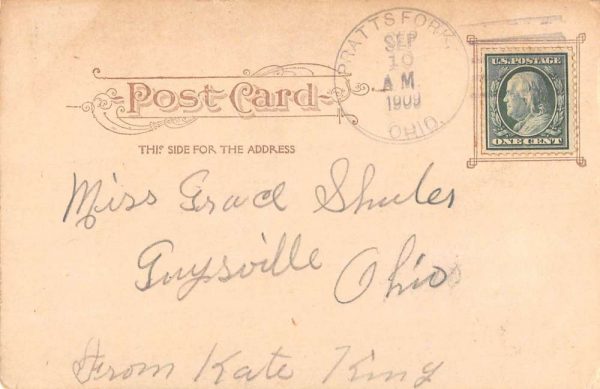 PRATTS FORK,
SEP
10
A.M.
1909
OHIO.
U.S. POSTAGE
ONE CENT
Post Card
THIS SIDE FOR THE ADDRESS
Miss Grace Shuler
Guysville
Ohio
From Kate King